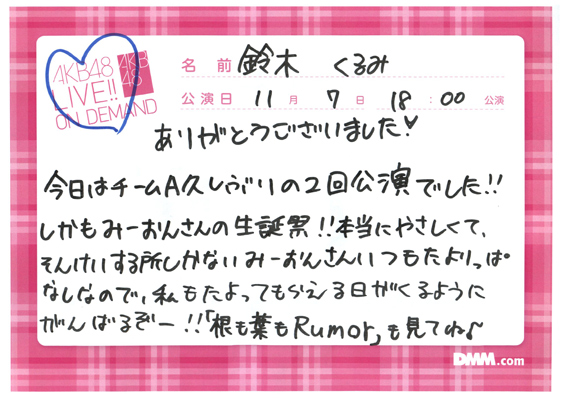 AKB48
LIVE!!
ON DEMAND
AKB
48
名前 鈴木 くるみ
公演日 11月7日 18:00公演
ありがとうございました!♥
今日はチームA久しぶりの2回公演でした!!
しかもみーおんさんの生誕祭!!本当にやさしくて、
そんけいする所しかないみーおんさんいつもたよりっぱ
なしなので、私もたよってもらえる日がくるように
がんばるぞー!!「根も葉もRumor」も見てね♪
DMM.com